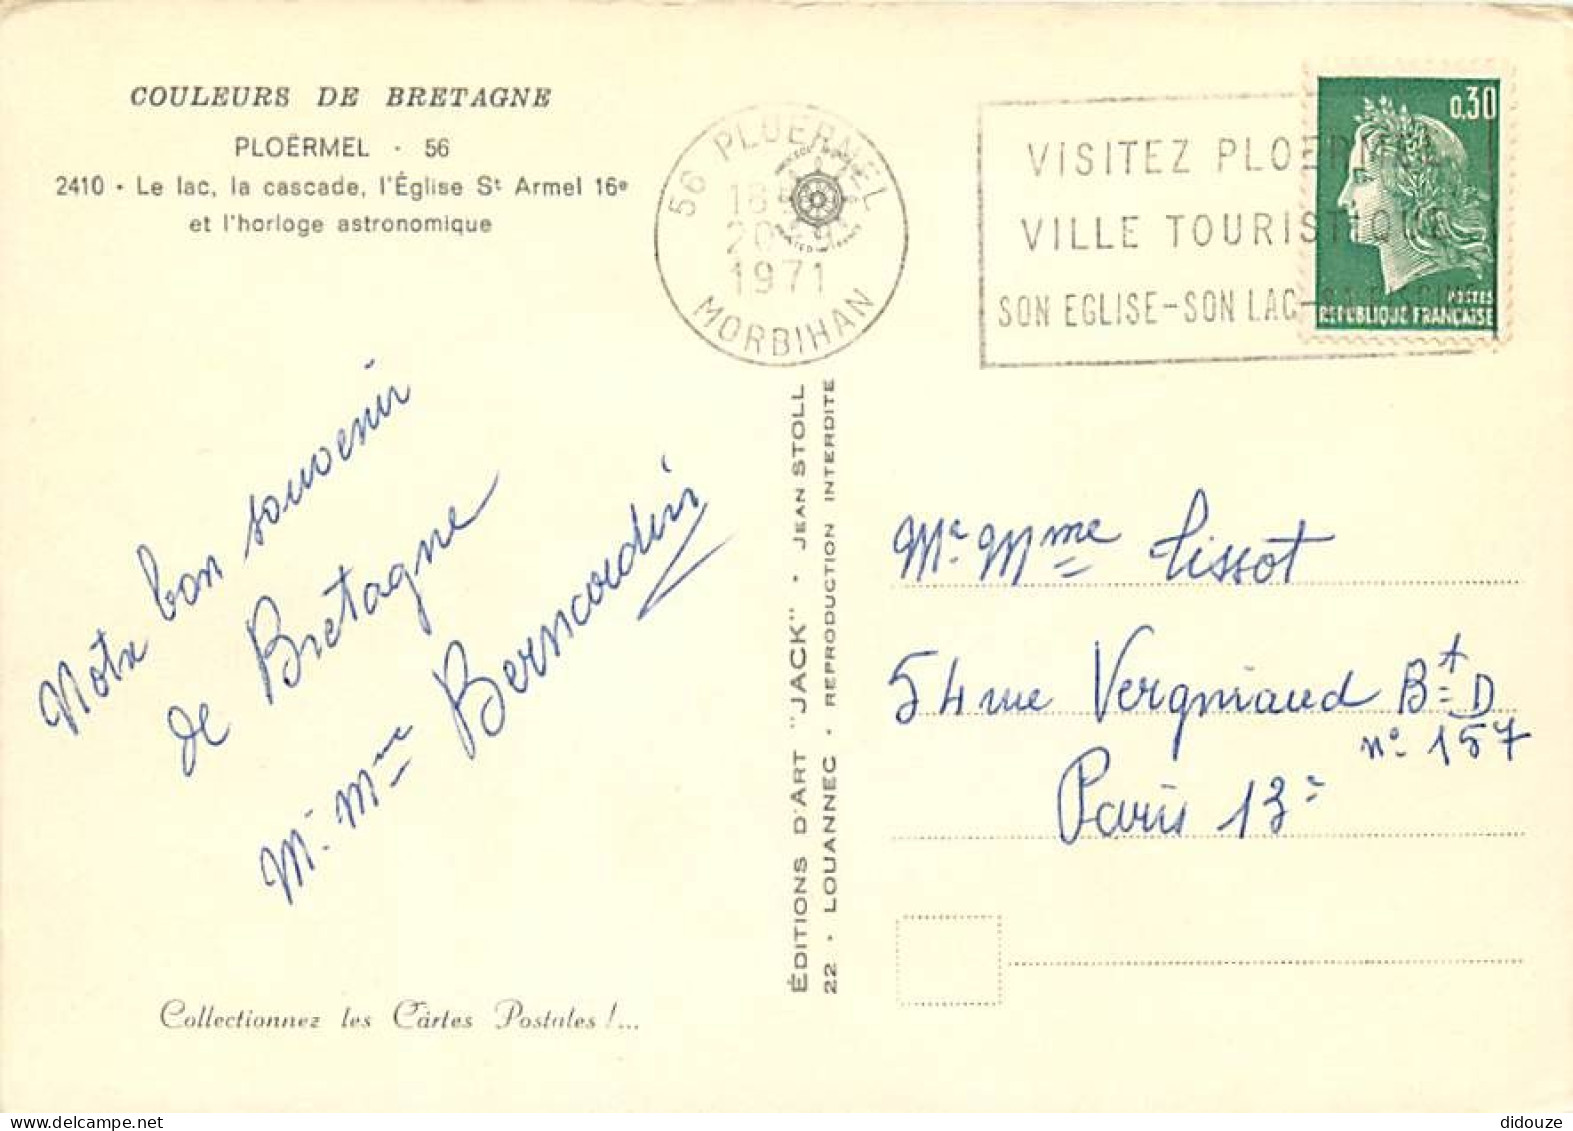 COULEURS DE BRETAGNE
PLOËRMEL - 56
2410 - Le lac, la cascade, l'Église St Armel 16e
et l'horloge astronomique
56 PLOERMEL
18
20
1971
MORBIHAN
VISITEZ PLOERMEL
VILLE TOURISTIQUE
SON EGLISE-SON LAC-
0,30
POSTES
REPUBLIQUE FRANÇAISE
Notre bon souvenir
de Bretagne
Mr. Mme Berncordin
ÉDITIONS D'ART "JACK" - JEAN STOLL
22 - LOUANNEC - REPRODUCTION INTERDITE
Mr. Mme Tissot
54 rue Vergniaud Bt D
n° 157
Paris 13e
Collectionnez les Cartes Postales !...
didouze